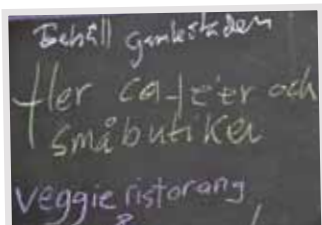 Behåll gamlestaden
fler caféer och
småbutiker
veggie ristorang